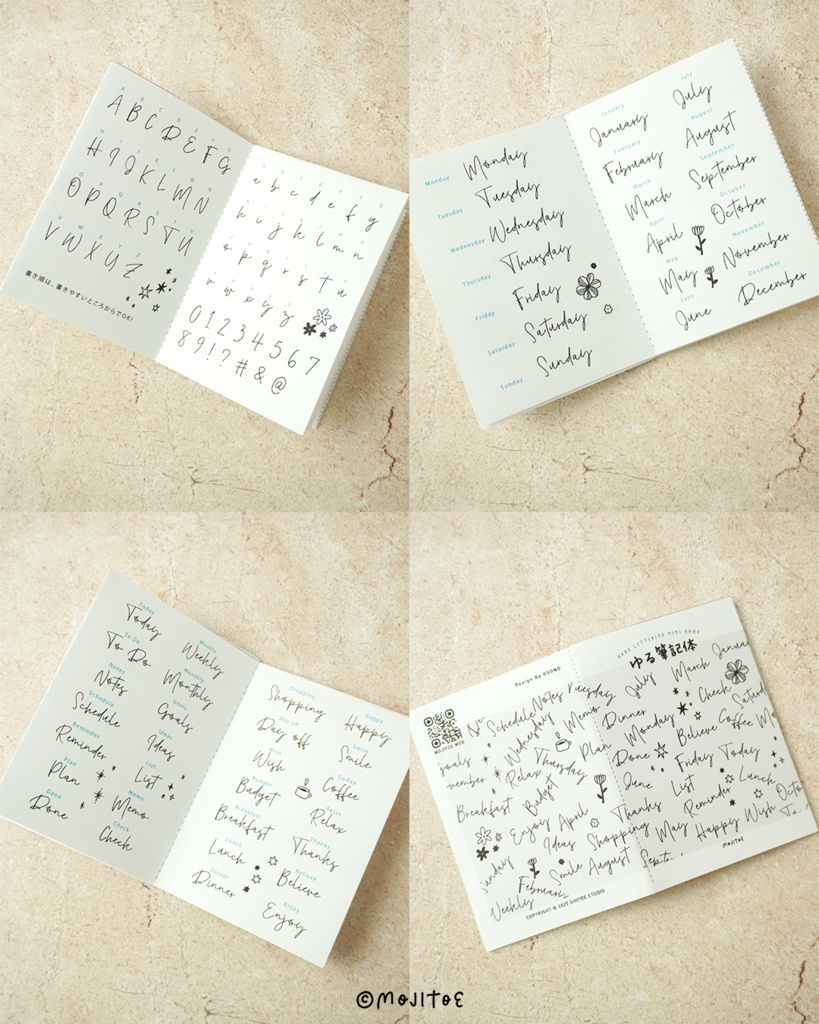 A B C D E F G
A B C D E F G
H I J K L M N
H I J K L M N
O P Q R S T U
O P Q R S T U
V W X Y Z
V W X Y Z
書き順は、書きやすいところからでOK!
a b c d e f g
h i j k l m n
o p q r s t u
v w x y z
0 1 2 3 4 5 6 7
8 9 ! ? # & @
Monday
Monday
Tuesday
Tuesday
Wednesday
Wednesday
Thursday
Thursday
Friday
Friday
Saturday
Saturday
Sunday
Sunday
January
January
February
February
March
March
April
April
May
May
June
June
July
July
August
August
September
September
October
October
November
November
December
December
Today
Today
To Do
To Do
Notes
Notes
Schedule
Schedule
Reminder
Reminder
Plan
Plan
Done
Done
Weekly
Weekly
Monthly
Monthly
Goals
Goals
Ideas
Ideas
List
List
Memo
Memo
Check
Check
Shopping
Shopping
Day off
Day off
Wish
Wish
Budget
Budget
Breakfast
Breakfast
Lunch
Lunch
Dinner
Dinner
Happy
Happy
Smile
Smile
Coffee
Coffee
Relax
Relax
Thanks
Thanks
Believe
Believe
Enjoy
Enjoy
Design By OSONO
MOJITOE WEB
Schedule Notes Tuesday
Wednesday Memo
Relax Thursday Plan
Breakfast Budget
Enjoy April
Ideas Shopping
Smile August
February
Weekly
COPYRIGHT © 2025 OHITOE STUDIO
HAND LETTERING MINI BOOK
ゆる筆記体
July March
Dinner Check
Monday Believe Coffee
Done Friday Today
June List Lunch
Thanks Reminder
May Happy Wish
MOJITOE
©MOJITOE